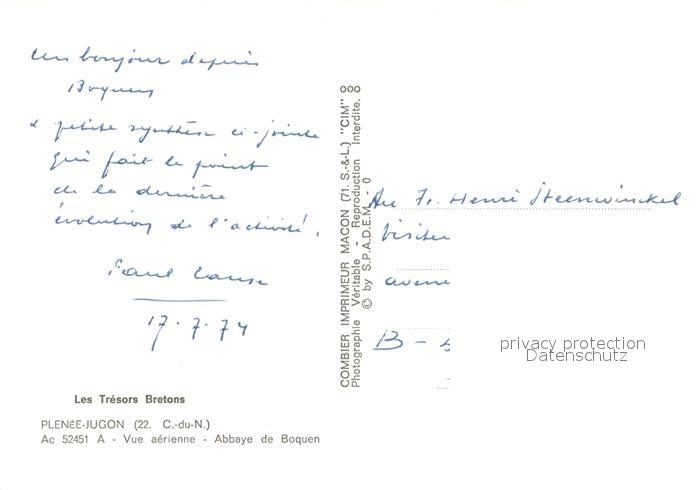 Un bonjour depuis
Boquen
& petite synthèse ci-jointe
qui fait le point
de la dernière
évolution de l'activité.
Paul
17.7.74
Les Trésors Bretons
PLENÉE-JUGON (22. C.-du-N.)
Ac 52451 A - Vue aérienne - Abbaye de Boquen
COMBIER IMPRIMEUR MACON (71. S.-&-L.) "CIM"
Photographie Véritable - Reproduction Interdite.
© by S.P.A.D.E.M. - 0
Au Fr. Henri Steenwinckel
Visiter
avenu
B -
privacy protection
Datenschutz